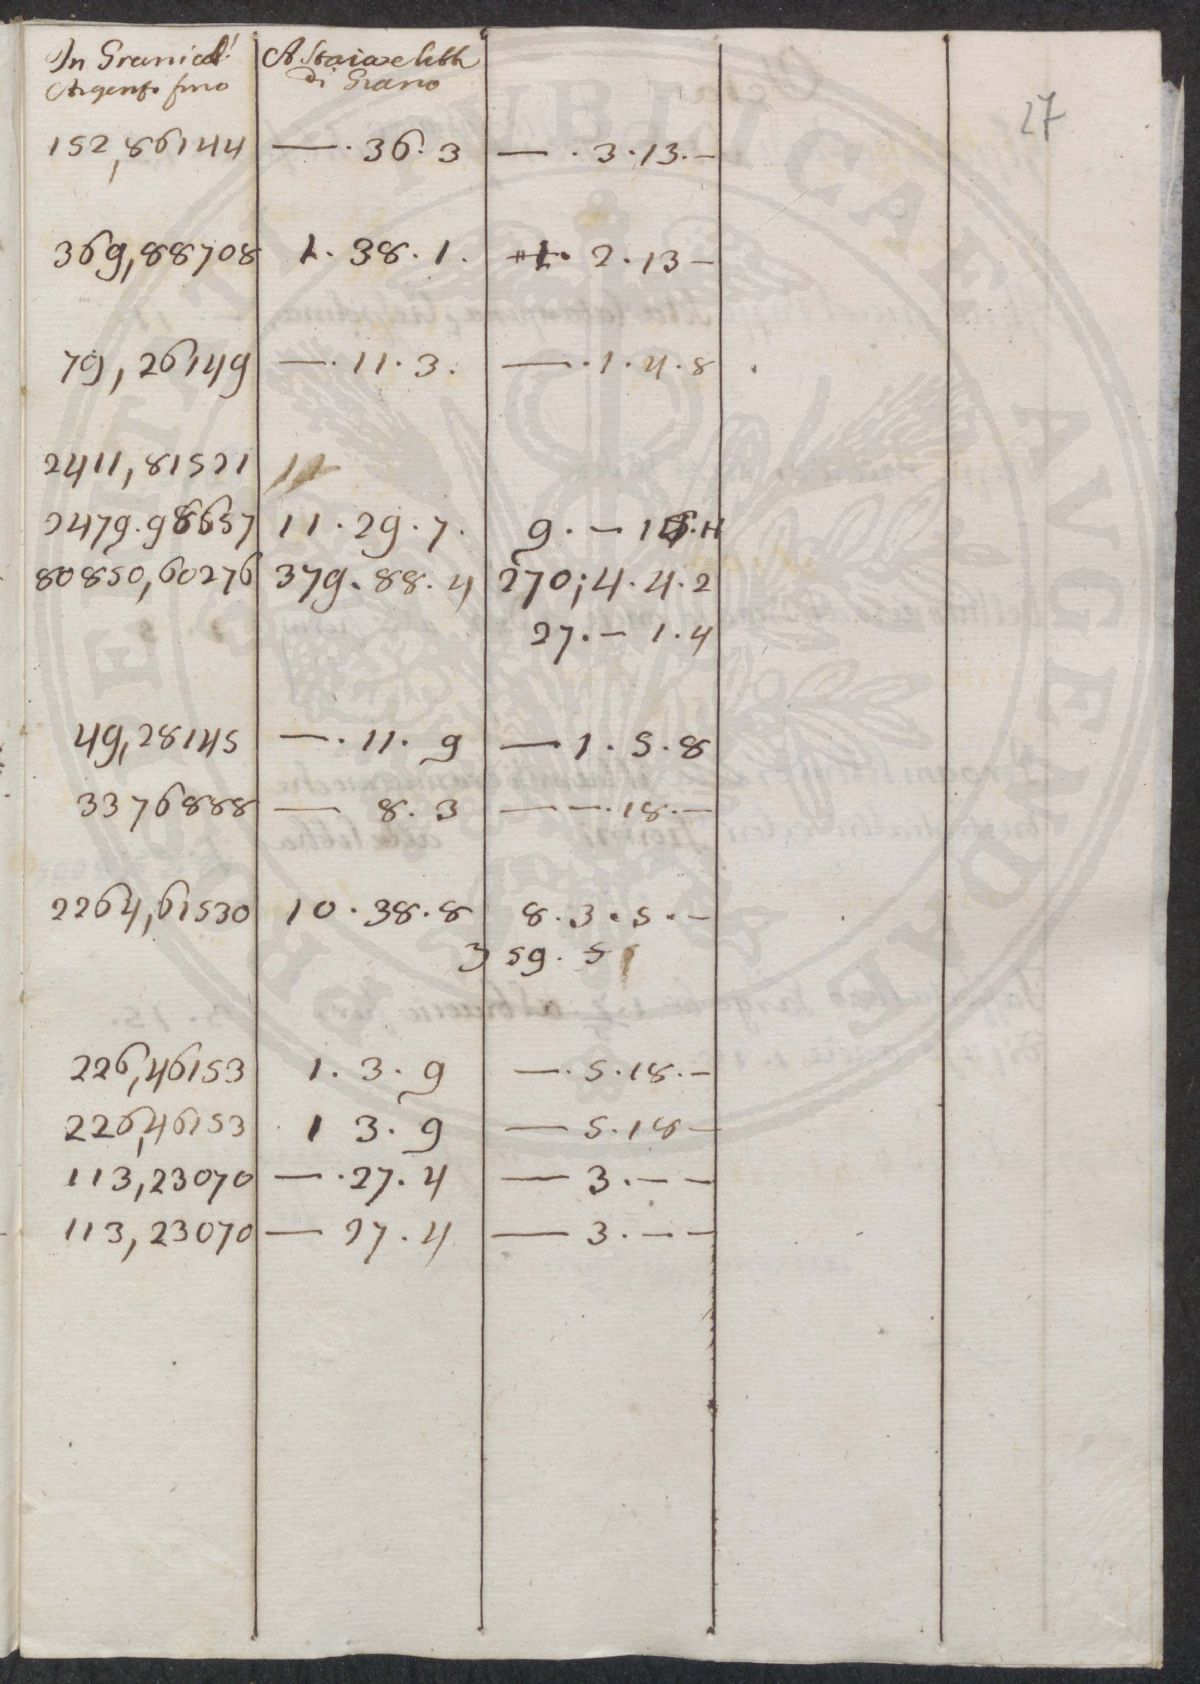 27
In Grani d'
Argento fino
A Staia e Libb
di Grano
152,86144 — . 36 . 3 — . 3 . 13 . —
369,88708 1 . 38 . 1 . 1 . 2 . 13 —
79,26149 — . 11 . 3 . — . 1 . 4 . 8
2411,81521 11
2479.98637 11 . 29 . 7 . 9 . —
80850,60276 379 . 88 . 4 270 ; 4 . 4 . 2
27 . — 1 . 4
49,28145 — . 11 . 9 — 1 . 5 . 8
3376888 — 8 . 3 — — . 18 . —
2264,61530 10 . 38 . 8 8 . 3 . 5 . —
359 . 5
226,46153 1 . 3 . 9 — . 5 . 18 . —
226,46153 1 3 . 9 — 5 . 18 —
113,23070 — . 27 . 4 — 3 . — —
113,23070 — 27 . 4 — 3 . — —